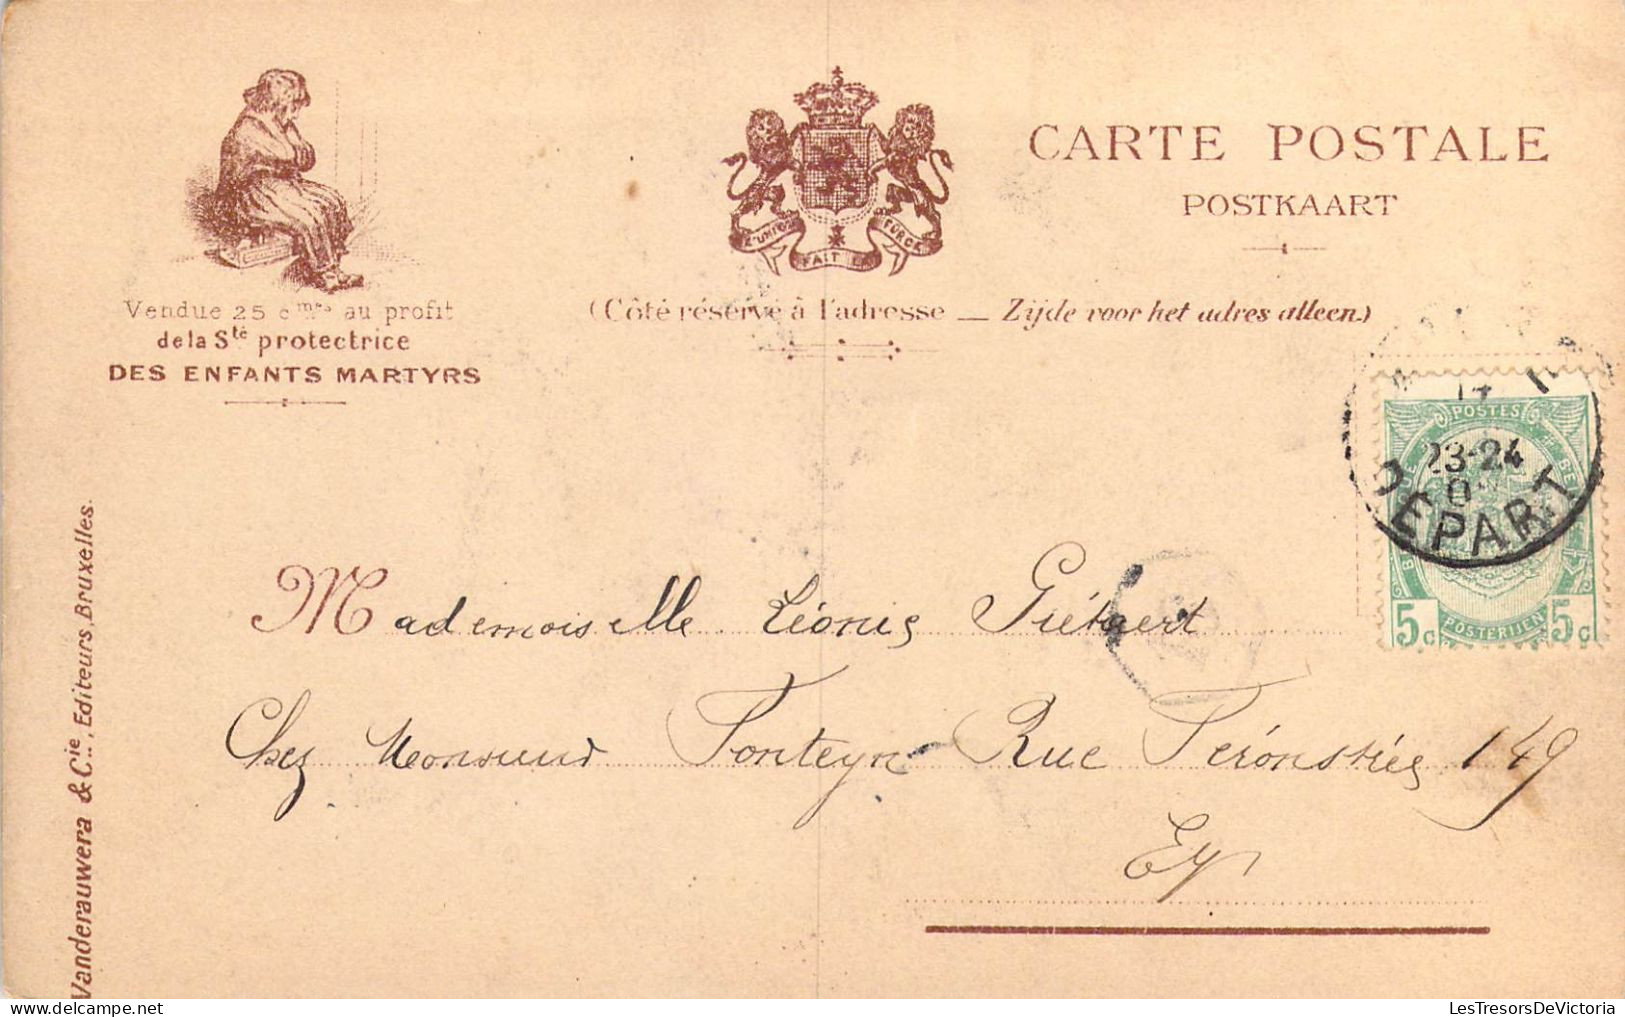 CARTE POSTALE
POSTKAART
L'UNION FAIT LA FORCE
Vendue 25 cmes au profit
de la Sté protectrice
DES ENFANTS MARTYRS
(Côté réservé à l'adresse — Zijde voor het adres alleen.)
POSTES
23-24
DEPART
5c POSTERIJEN 5c
Mademoiselle Léonie
Chez Monsieur Fonteyn Rue Féronstrée 149
Ey
Vanderauwera & Cie., Editeurs, Bruxelles.
LesTresorsDeVictoria